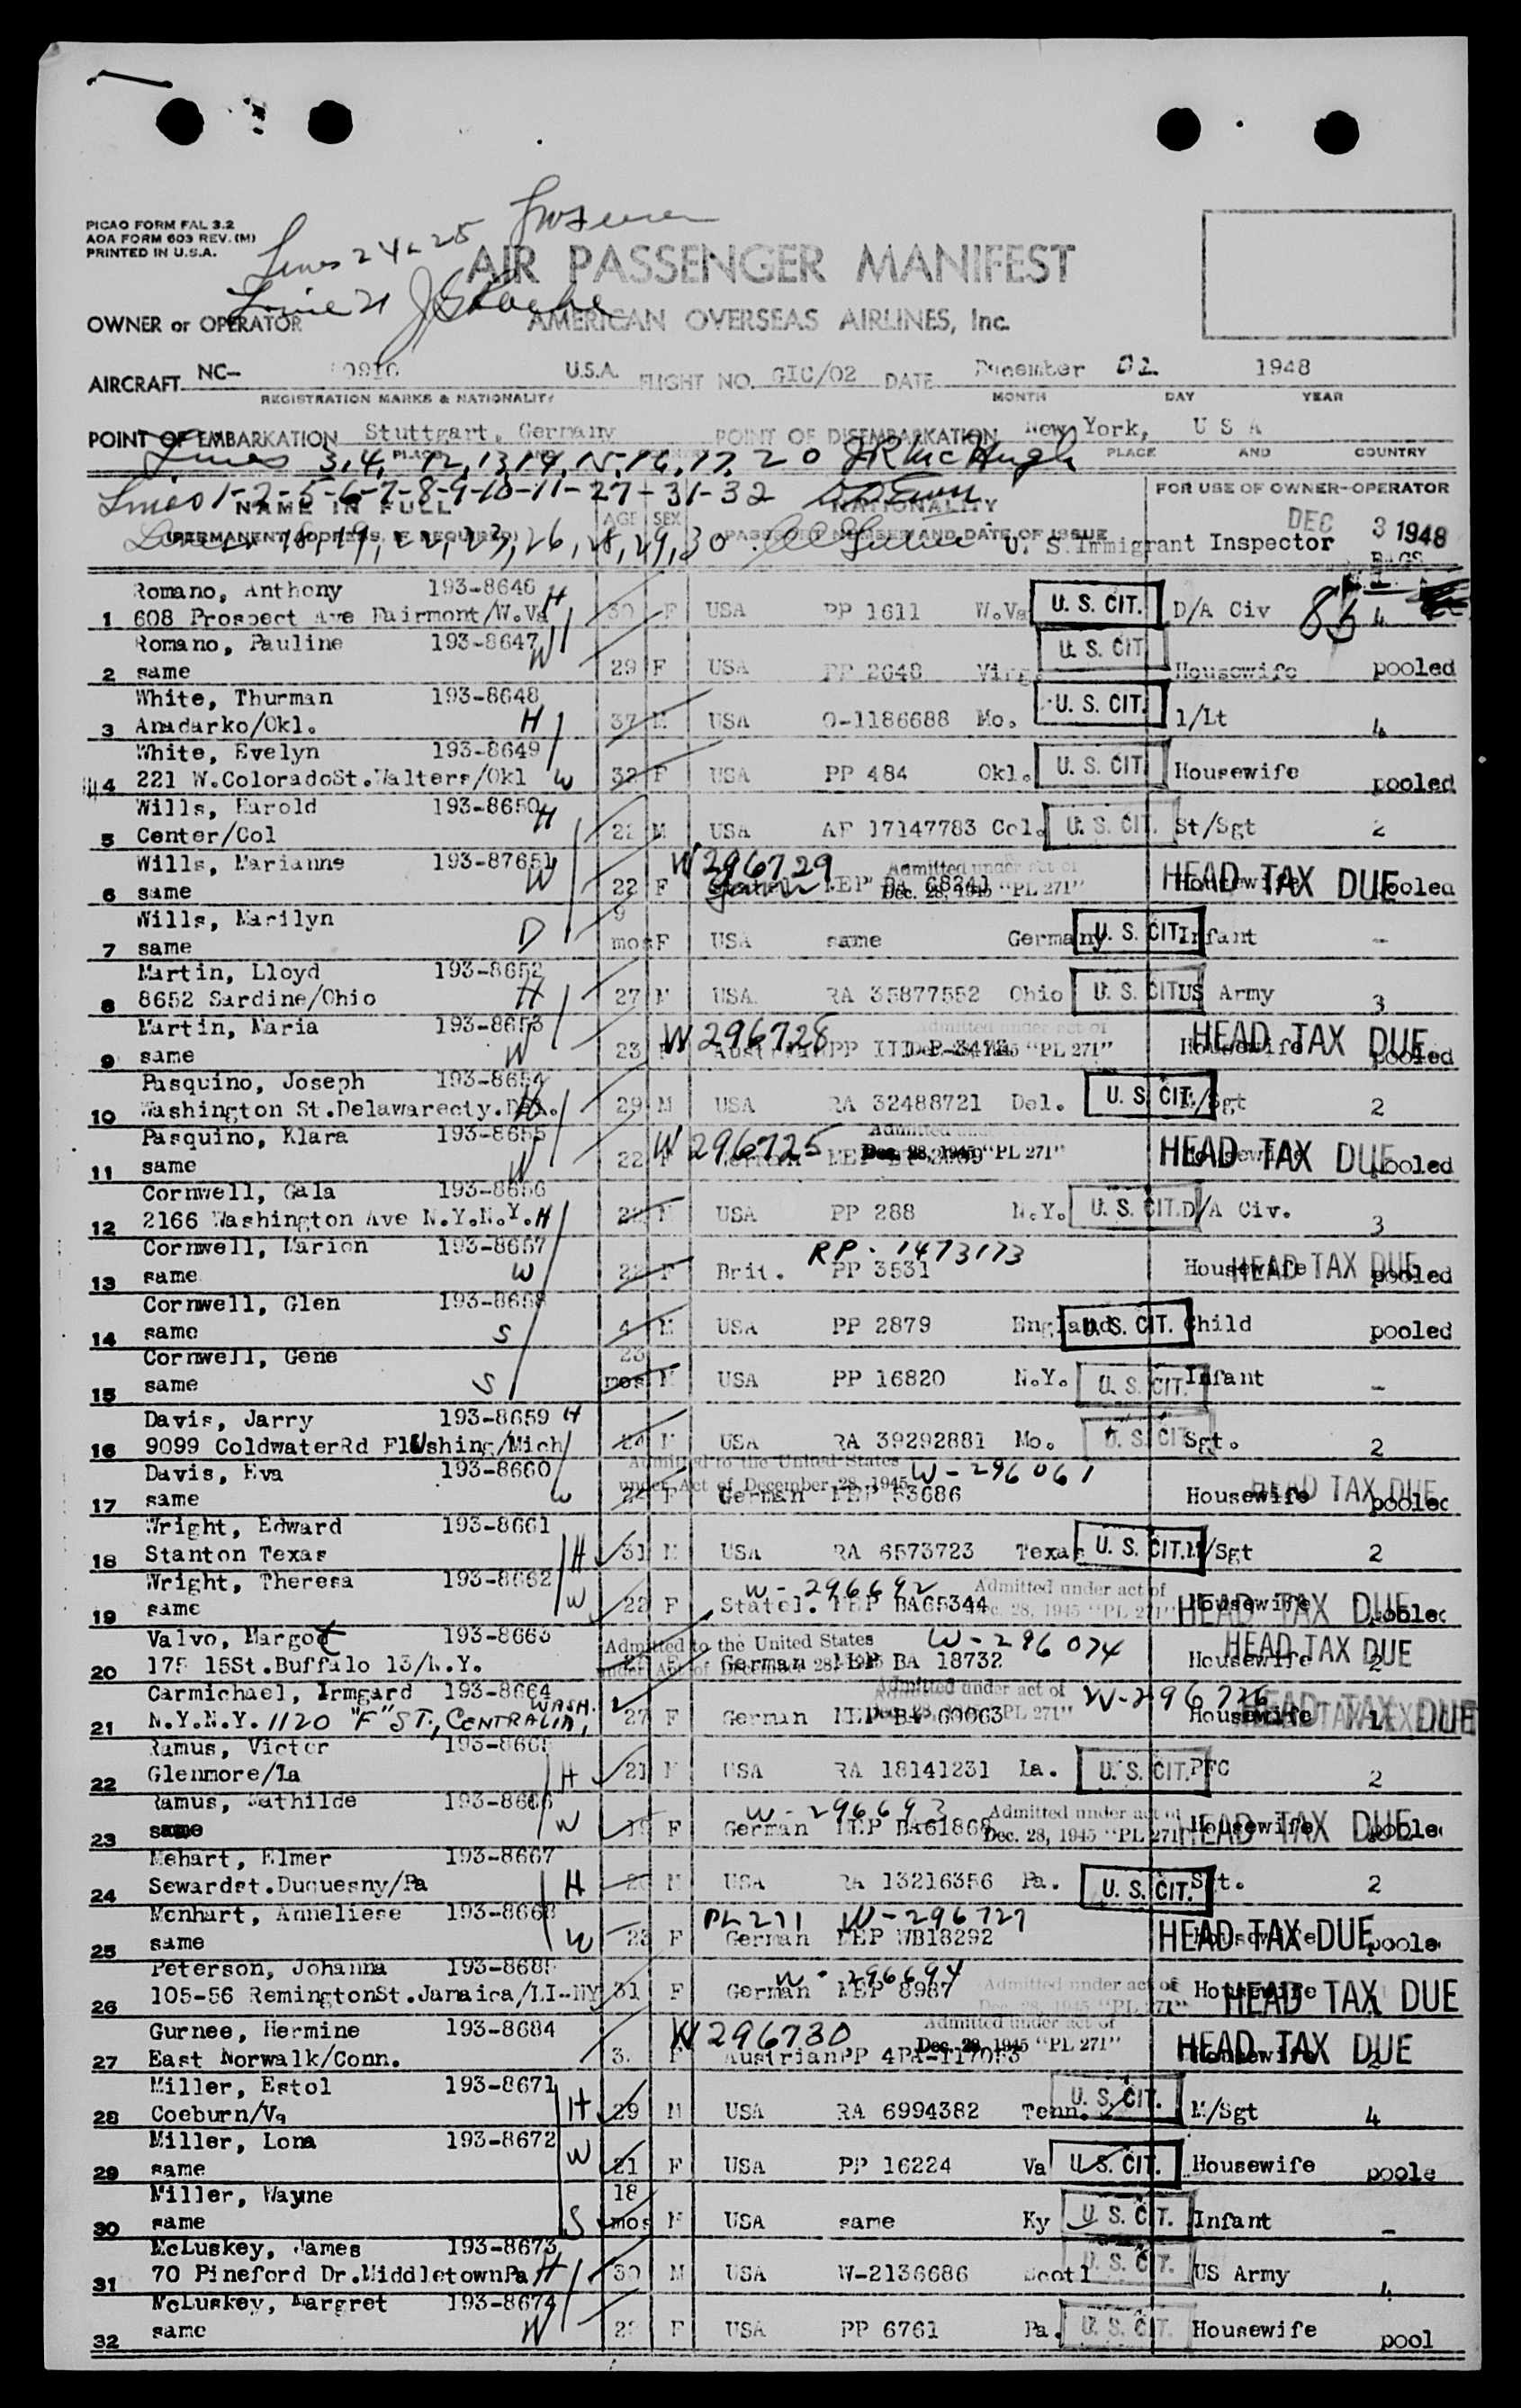 PICAO FORM FAL 3.2
AOA FORM 603 REV. (M)
PRINTED IN U.S.A.
Lines 24-25
Line 21
AIR PASSENGER MANIFEST
OWNER or OPERATOR
AMERICAN OVERSEAS AIRLINES, Inc.
AIRCRAFT NC- U.S.A. FLIGHT NO. GIC/02 DATE December 02 1948
REGISTRATION MARKS & NATIONALITY MONTH DAY YEAR
POINT OF EMBARKATION Stuttgart, Germany POINT OF DISEMBARKATION New York, U S A
PLACE PLACE AND COUNTRY
Lines 3,4, 12,13,14,15,16,17,20 JR McHugh
Lines 1-2-5-6-7-8-9-10-11-27-31-32
NAME IN FULL AGE SEX NATIONALITY FOR USE OF OWNER-OPERATOR
(PERMANENT ADDRESS, IF REQUIRED) PASSPORT NUMBER AND DATE OF ISSUE
Lines 18,19,22,23,26,28,29,30 U. S. Immigrant Inspector DEC 3 1948
BAGS
Romano, Anthony 193-8646 H
1 608 Prospect Ave Fairmont/W.Va 30 F USA PP 1611 W.Va U. S. CIT. D/A Civ 4
Romano, Pauline 193-8647 W
2 same 29 F USA PP 2648 U. S. CIT Housewife pooled
White, Thurman 193-8648
3 Anadarko/Okl. H 37 M USA O-1186688 Mo. U. S. CIT. 1/Lt 4
White, Evelyn 193-8649
4 221 W.ColoradoSt.Walters/Okl W 32 F USA PP 484 Okl. U. S. CIT Housewife pooled
Wills, Harold 193-8650 H
5 Center/Col 22 M USA AF 17147783 Col. U. S. CIT. St/Sgt 2
Wills, Marianne 193-87651 W296729 Admitted under act of
6 same W 22 F MEP BA 68241 Dec. 28, 1945 "PL 271" Housewife HEAD TAX DUE pooled
Wills, Marilyn 9
7 same D mos F USA same Germany U. S. CIT. Infant -
Martin, Lloyd 193-8652
8 8652 Sardine/Ohio H 27 M USA RA 35877552 Ohio U. S. CIT US Army 3
Martin, Maria 193-8653 W296728 Admitted under act of
9 same W 23 Austrian PP "PL 271" Housewife HEAD TAX DUE pooled
Pasquino, Joseph 193-8654
10 Washington St.Delawarecty.Del. H 29 M USA RA 32488721 Del. U. S. CIT. 2
Pasquino, Klara 193-8655 W296725 Admitted
11 same W 22 F German MEP Dec. 28, 1945 "PL 271" Housewife HEAD TAX DUE pooled
Cornwell, Gala 193-8656
12 2166 Washington Ave N.Y.N.Y. H 22 M USA PP 288 N.Y. U. S. CIT. D/A Civ. 3
Cornwell, Marion 193-8657 RP. 1473173
13 same W 22 F Brit. PP 3531 Housewife HEAD TAX DUE pooled
Cornwell, Glen 193-8658
14 same S 4 M USA PP 2879 England U. S. CIT. Child pooled
Cornwell, Gene 23
15 same S mos M USA PP 16820 N.Y. U. S. CIT. Infant -
Davis, Jarry 193-8659 H
16 9099 ColdwaterRd Flushing/Mich 24 M USA RA 39292881 Mo. U. S. CIT Sgt. 2
Davis, Eva 193-8660 Admitted to the United States under Act of December 28, 1945 W-296061
17 same W 22 F German MEP 53686 Housewife HEAD TAX DUE pooled
Wright, Edward 193-8661
18 Stanton Texas H 31 M USA RA 6573723 Texas U. S. CIT. M/Sgt 2
Wright, Theresa 193-8662 W-296692 Admitted under act of
19 same W 22 F Statel. MEP BA65344 Dec. 28, 1945 "PL 271" Housewife HEAD TAX DUE pooled
Valvo, Margot 193-8663 Admitted to the United States W-296074
20 175 15St.Buffalo 13/N.Y. under Act of December 28, 1945 F German MEP BA 18732 Housewife HEAD TAX DUE 2
Carmichael, Irmgard 193-8664 WASH. Admitted under act of W-296726
21 N.Y.N.Y. 1120 "F" ST, CENTRALIA, 27 F German MEP BA 60063 "PL 271" Housewife HEAD TAX DUE 1
Ramus, Victor
22 Glenmore/La H 21 M USA RA 18141231 La. U. S. CIT. PFC 2
Ramus, Mathilde 193-8666 W-296693 Admitted under act of
23 same W 19 F German MEP BA61868 Dec. 28, 1945 "PL 271" Housewife HEAD TAX DUE poole
Mehart, Elmer 193-8667
24 Sewardst.Duquesny/Pa H M USA RA 13216356 Pa. U. S. CIT. Sgt. 2
Menhart, Anneliese 193-8668 PL 271 W-296727
25 same W 23 F German MEP WB18292 Housewife HEAD TAX DUE poole
Peterson, Johanna W-296694
26 105-56 RemingtonSt.Jamaica/LI-NY 31 F German MEP 8987 Admitted under act of Housewife HEAD TAX DUE
Gurnee, Hermine 193-8684 W296730 Admitted under act of
27 East Norwalk/Conn. F Austrian PP Dec. 28, 1945 "PL 271" Housewife HEAD TAX DUE 2
Miller, Estol 193-8671
28 Coeburn/Va H 29 M USA RA 6994382 Tenn. U. S. CIT. M/Sgt 4
Miller, Lona 193-8672
29 same W 21 F USA PP 16224 Va U. S. CIT. Housewife poole
Miller, Wayne 18
30 same S mos M USA same Ky U. S. CIT. Infant -
McLuskey, James 193-8673
31 70 Pineford Dr.MiddletownPa H 30 M USA W-2136686 U. S. CIT. US Army 4
McLuskey, Margret 193-8674
32 same W F USA PP 6761 Pa. U. S. CIT. Housewife pool